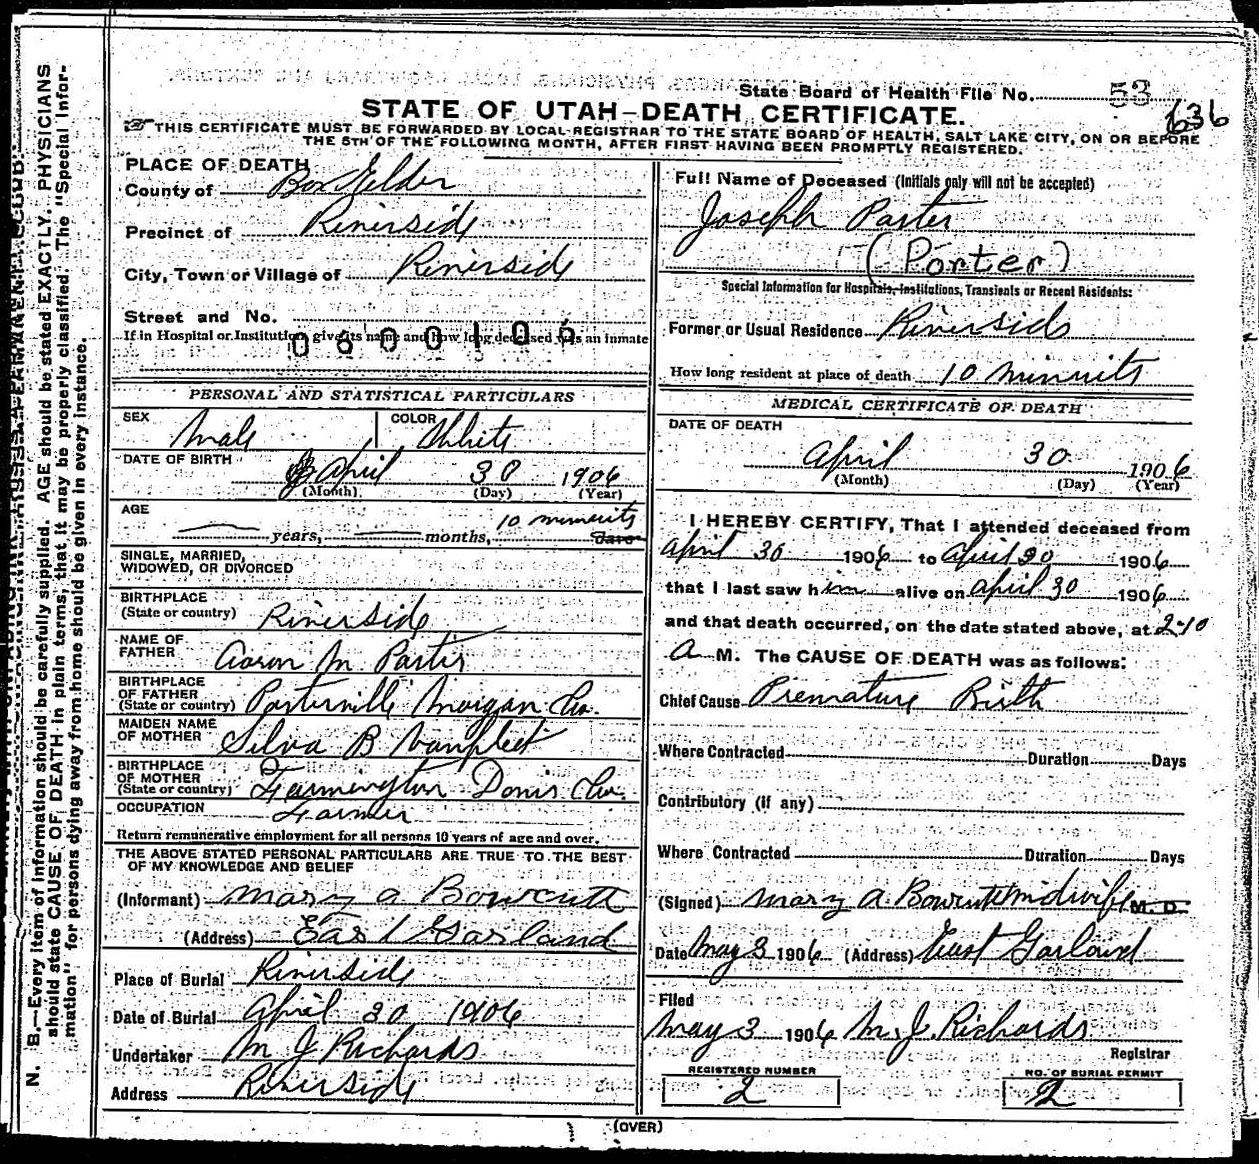 State Board of Health File No. 53
636
STATE OF UTAH—DEATH CERTIFICATE.
THIS CERTIFICATE MUST BE FORWARDED BY LOCAL REGISTRAR TO THE STATE BOARD OF HEALTH, SALT LAKE CITY, ON OR BEFORE
THE 5TH OF THE FOLLOWING MONTH, AFTER FIRST HAVING BEEN PROMPTLY REGISTERED.
PLACE OF DEATH
County of Box Elder
Precinct of Riverside
City, Town or Village of Riverside
Street and No.
If in Hospital or Institution give its name and how long deceased was an inmate
0600106
PERSONAL AND STATISTICAL PARTICULARS
SEX Male COLOR White
DATE OF BIRTH April 30 1906
(Month) (Day) (Year)
AGE
years, months, 10 minuits Days
SINGLE, MARRIED,
WIDOWED, OR DIVORCED
BIRTHPLACE
(State or country) Riverside
NAME OF
FATHER Aaron M Porter
BIRTHPLACE
OF FATHER
(State or country) Porterville Morgan Co.
MAIDEN NAME
OF MOTHER Silva B Vanfleet
BIRTHPLACE
OF MOTHER
(State or country) Farmington Davis Co.
OCCUPATION
Farmer
Return remunerative employment for all persons 10 years of age and over.
THE ABOVE STATED PERSONAL PARTICULARS ARE TRUE TO THE BEST
OF MY KNOWLEDGE AND BELIEF
(Informant) Mary A Bowcutt
(Address) East Garland
Place of Burial Riverside
Date of Burial April 30 1906
Undertaker M J Richards
Address Riverside
Full Name of Deceased (Initials only will not be accepted)
Joseph Porter
(Porter)
Special Information for Hospitals, Institutions, Transients or Recent Residents:
Former or Usual Residence Riverside
How long resident at place of death 10 minuits
MEDICAL CERTIFICATE OF DEATH
DATE OF DEATH
April 30 1906
(Month) (Day) (Year)
I HEREBY CERTIFY, That I attended deceased from
April 30 1906 to April 30 1906
that I last saw him alive on April 30 1906
and that death occurred, on the date stated above, at 2-10
A M. The CAUSE OF DEATH was as follows:
Chief Cause Premature Birth
Where Contracted Duration Days
Contributory (if any)
Where Contracted Duration Days
(Signed) Mary A. Bowcutt midwife M. D.
Date May 3 1906 (Address) East Garland
Filed
May 3 1906 M. J. Richards
Registrar
REGISTERED NUMBER
2
NO. OF BURIAL PERMIT
2
(OVER)
N. B.—Every item of information should be carefully supplied. AGE should be stated EXACTLY. PHYSICIANS
should state CAUSE OF DEATH in plain terms, that it may be properly classified. The "Special Infor-
mation" for persons dying away from home should be given in every instance.